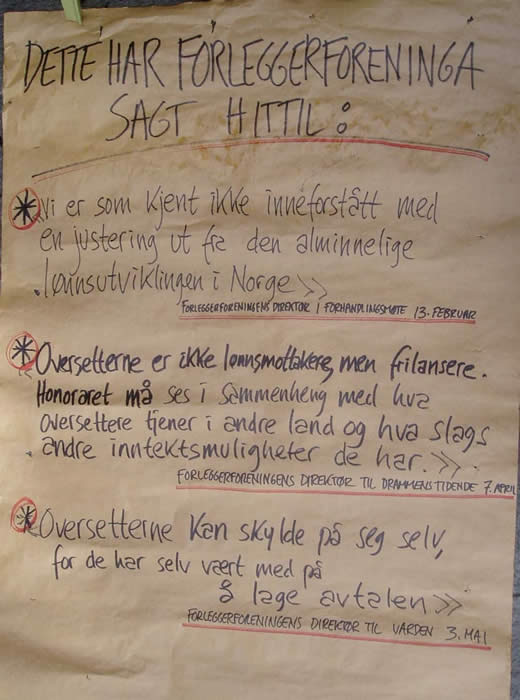 DETTE HAR FORLEGGERFORENINGA
SAGT HITTIL:
* Vi er som kjent ikke inneforstått med
en justering ut fra den alminnelige
lønnsutviklingen i Norge>>
FORLEGGERFORENINGENS DIREKTØR I FORHANDLINGSMØTE 13. FEBRUAR
* Oversetterne er ikke lønnsmottakere, men frilansere.
Honoraret må ses i sammenheng med hva
oversettere tjener i andre land og hva slags
andre inntektsmuligheter de har.>>
FORLEGGERFORENINGENS DIREKTØR TIL DRAMMENS TIDENDE 7. APRIL
* Oversetterne kan skylde på seg selv,
for de har selv vært med på
å lage avtalen>>
FORLEGGERFORENINGENS DIREKTØR TIL VARDEN 3. MAI